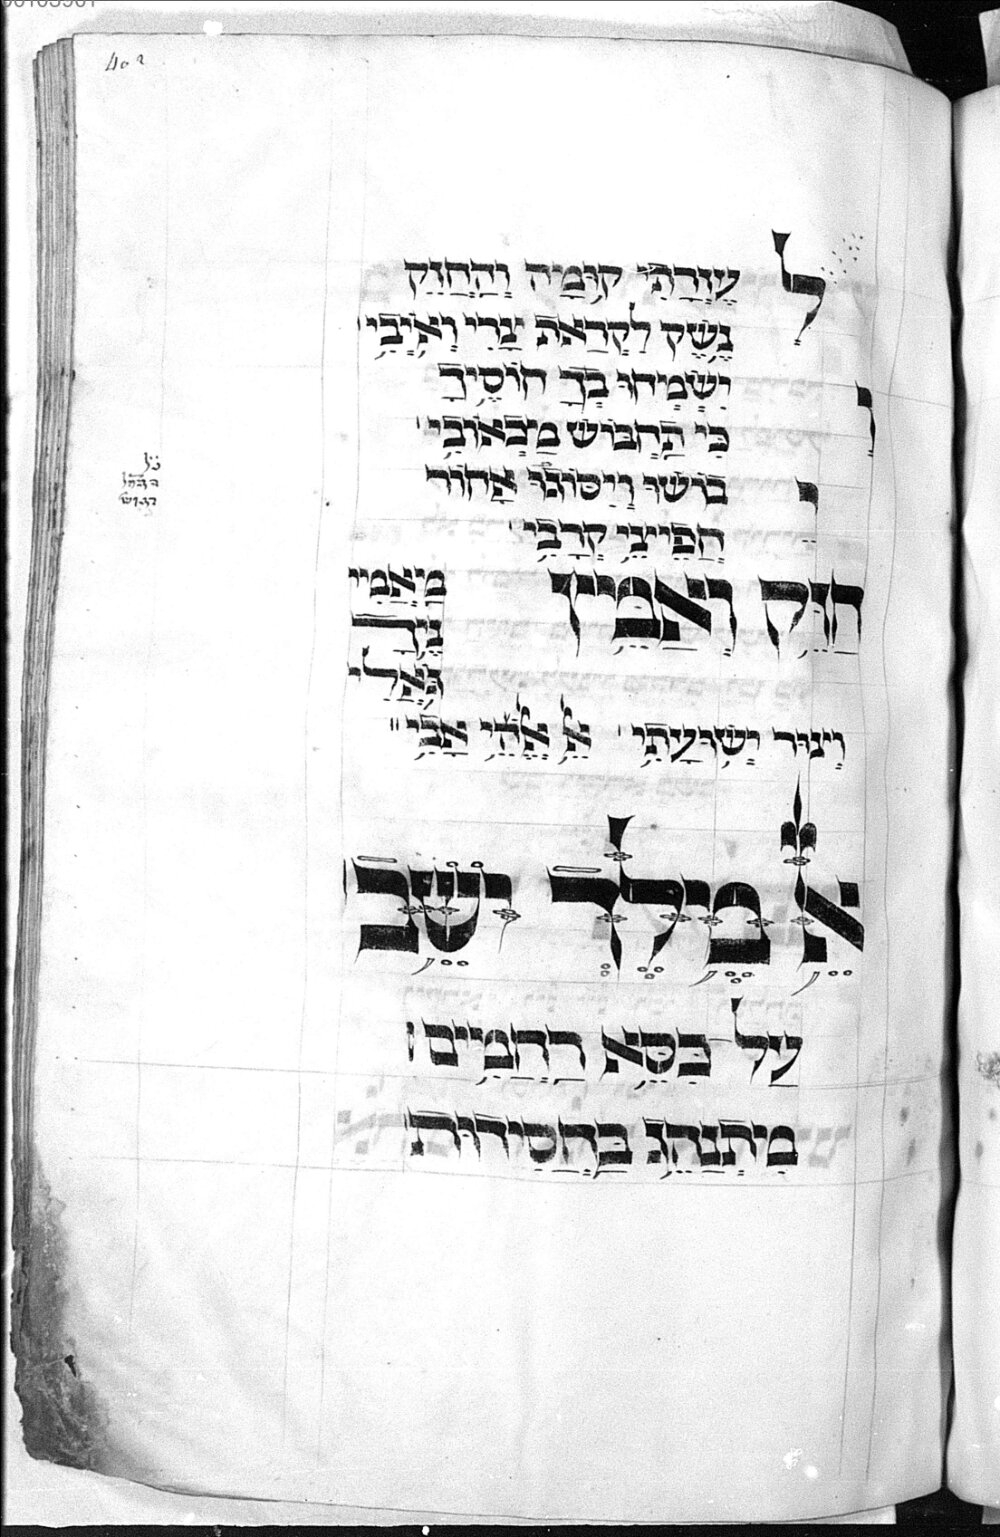 402
לְ עֶזְרָתִי קוּמָיה וְהַחֲזֵק
נֶשֶׁק לִקְרַאת צָרַי וְאוֹיְבַי
וְ יִשְׂמְיחוּ בָךְ חוֹסֶיךָ
כִּי תַחְבּוֹשׁ מַכְאוֹבַי
וְ בוֹשׁוּ וְיִסוֹגוּ אָחוֹר
חֲפֵיצֵי קְרָבַי
חֲזַק וֶאֱמַיץ
גֹאֲלִי
וְצוּר יְשׁוּעָתִי אֵל אֱלֹהֵי אָבִי
אֵל מֶלֶךְ יוֹשֵׁב
עַל כִּסֵא רַחֲמִים
מִיתְנַהֵג בַּחֲסִידוּת